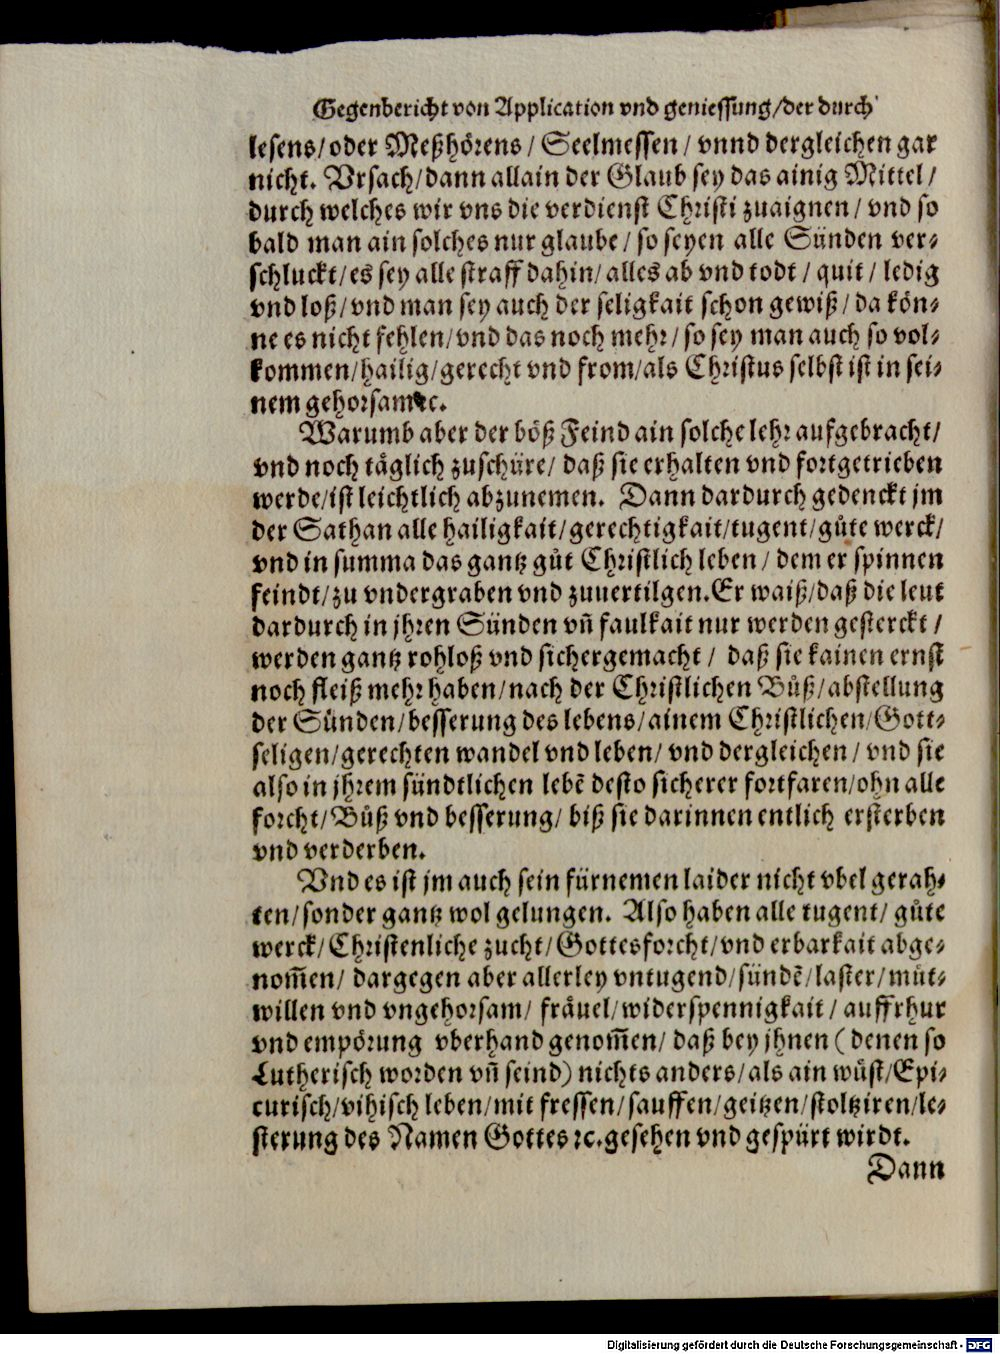 Gegenbericht von Application vnd geniessung/der durch
lesens/oder Meßhörens/ Seelmessen/ vnnd dergleichen gar
nicht. Vrsach/dann allain der Glaub sey das ainig Mittel/
durch welches wir vns die verdienst Christi zuaignen/ vnd so
bald man ain solches nur glaube/ so seyen alle Sünden ver⸗
schluckt/es sey alle straff dahin/ alles ab vnd todt/ quit/ ledig
vnd loß/vnd man sey auch der seligkait schon gewiß/ da kön⸗
ne es nicht fehlen/vnd das noch mehr/ so sey man auch so vol⸗
kommen/hailig/gerecht vnd from/als Christus selbst ist in sei⸗
nem gehorsam ꝛc.
Warumb aber der böß Feind ain solche lehr aufgebracht/
vnd noch täglich zuschüre/ daß sie erhalten vnd fortgetrieben
werde/ist leichtlich abzunemen. Dann dardurch gedenckt jm
der Sathan alle hailigkait/gerechtigkait/tugent/gůte werck/
vnd in summa das gantz gůt Christlich leben/ dem er spinnen
feindt/zu vndergraben vnd zuuertilgen. Er waiß/daß die leut
dardurch in jhren Sünden vñ faulkait nur werden gesterckt/
werden gantz rohloß vnd sichergemacht/ daß sie kainen ernst
noch fleiß mehr haben/nach der Christlichen Bůß/abstellung
der Sünden/besserung des lebens/ainem Christlichen/Gott⸗
seligen/gerechten wandel vnd leben/ vnd dergleichen/ vnd sie
also in jhrem sündtlichen lebẽ desto sicherer fortfaren/ohn alle
forcht/Bůß vnd besserung/ biß sie darinnen entlich ersterben
vnd verderben.
Vnd es ist jm auch sein fürnemen laider nicht vbel gerah⸗
ten/sonder gantz wol gelungen. Also haben alle tugent/ gůte
werck/Christenliche zucht/Gottesforcht/vnd erbarkait abge⸗
nom̃en/ dargegen aber allerley vntugend/sündẽ/laster/můt⸗
willen vnd vngehorsam/ fräuel/widerspennigkait/ auffrhur
vnd empörung vberhand genom̃en/ daß bey jhnen (denen so
Lutherisch worden vñ seind) nichts anders/als ain wůst/Epi⸗
curisch/vihisch leben/mit fressen/sauffen/geitzen/stoltziren/le⸗
sterung des Namen Gottes ꝛc. gesehen vnd gespürt wirdt.
Dann
Digitalisierung gefördert durch die Deutsche Forschungsgemeinschaft - DFG